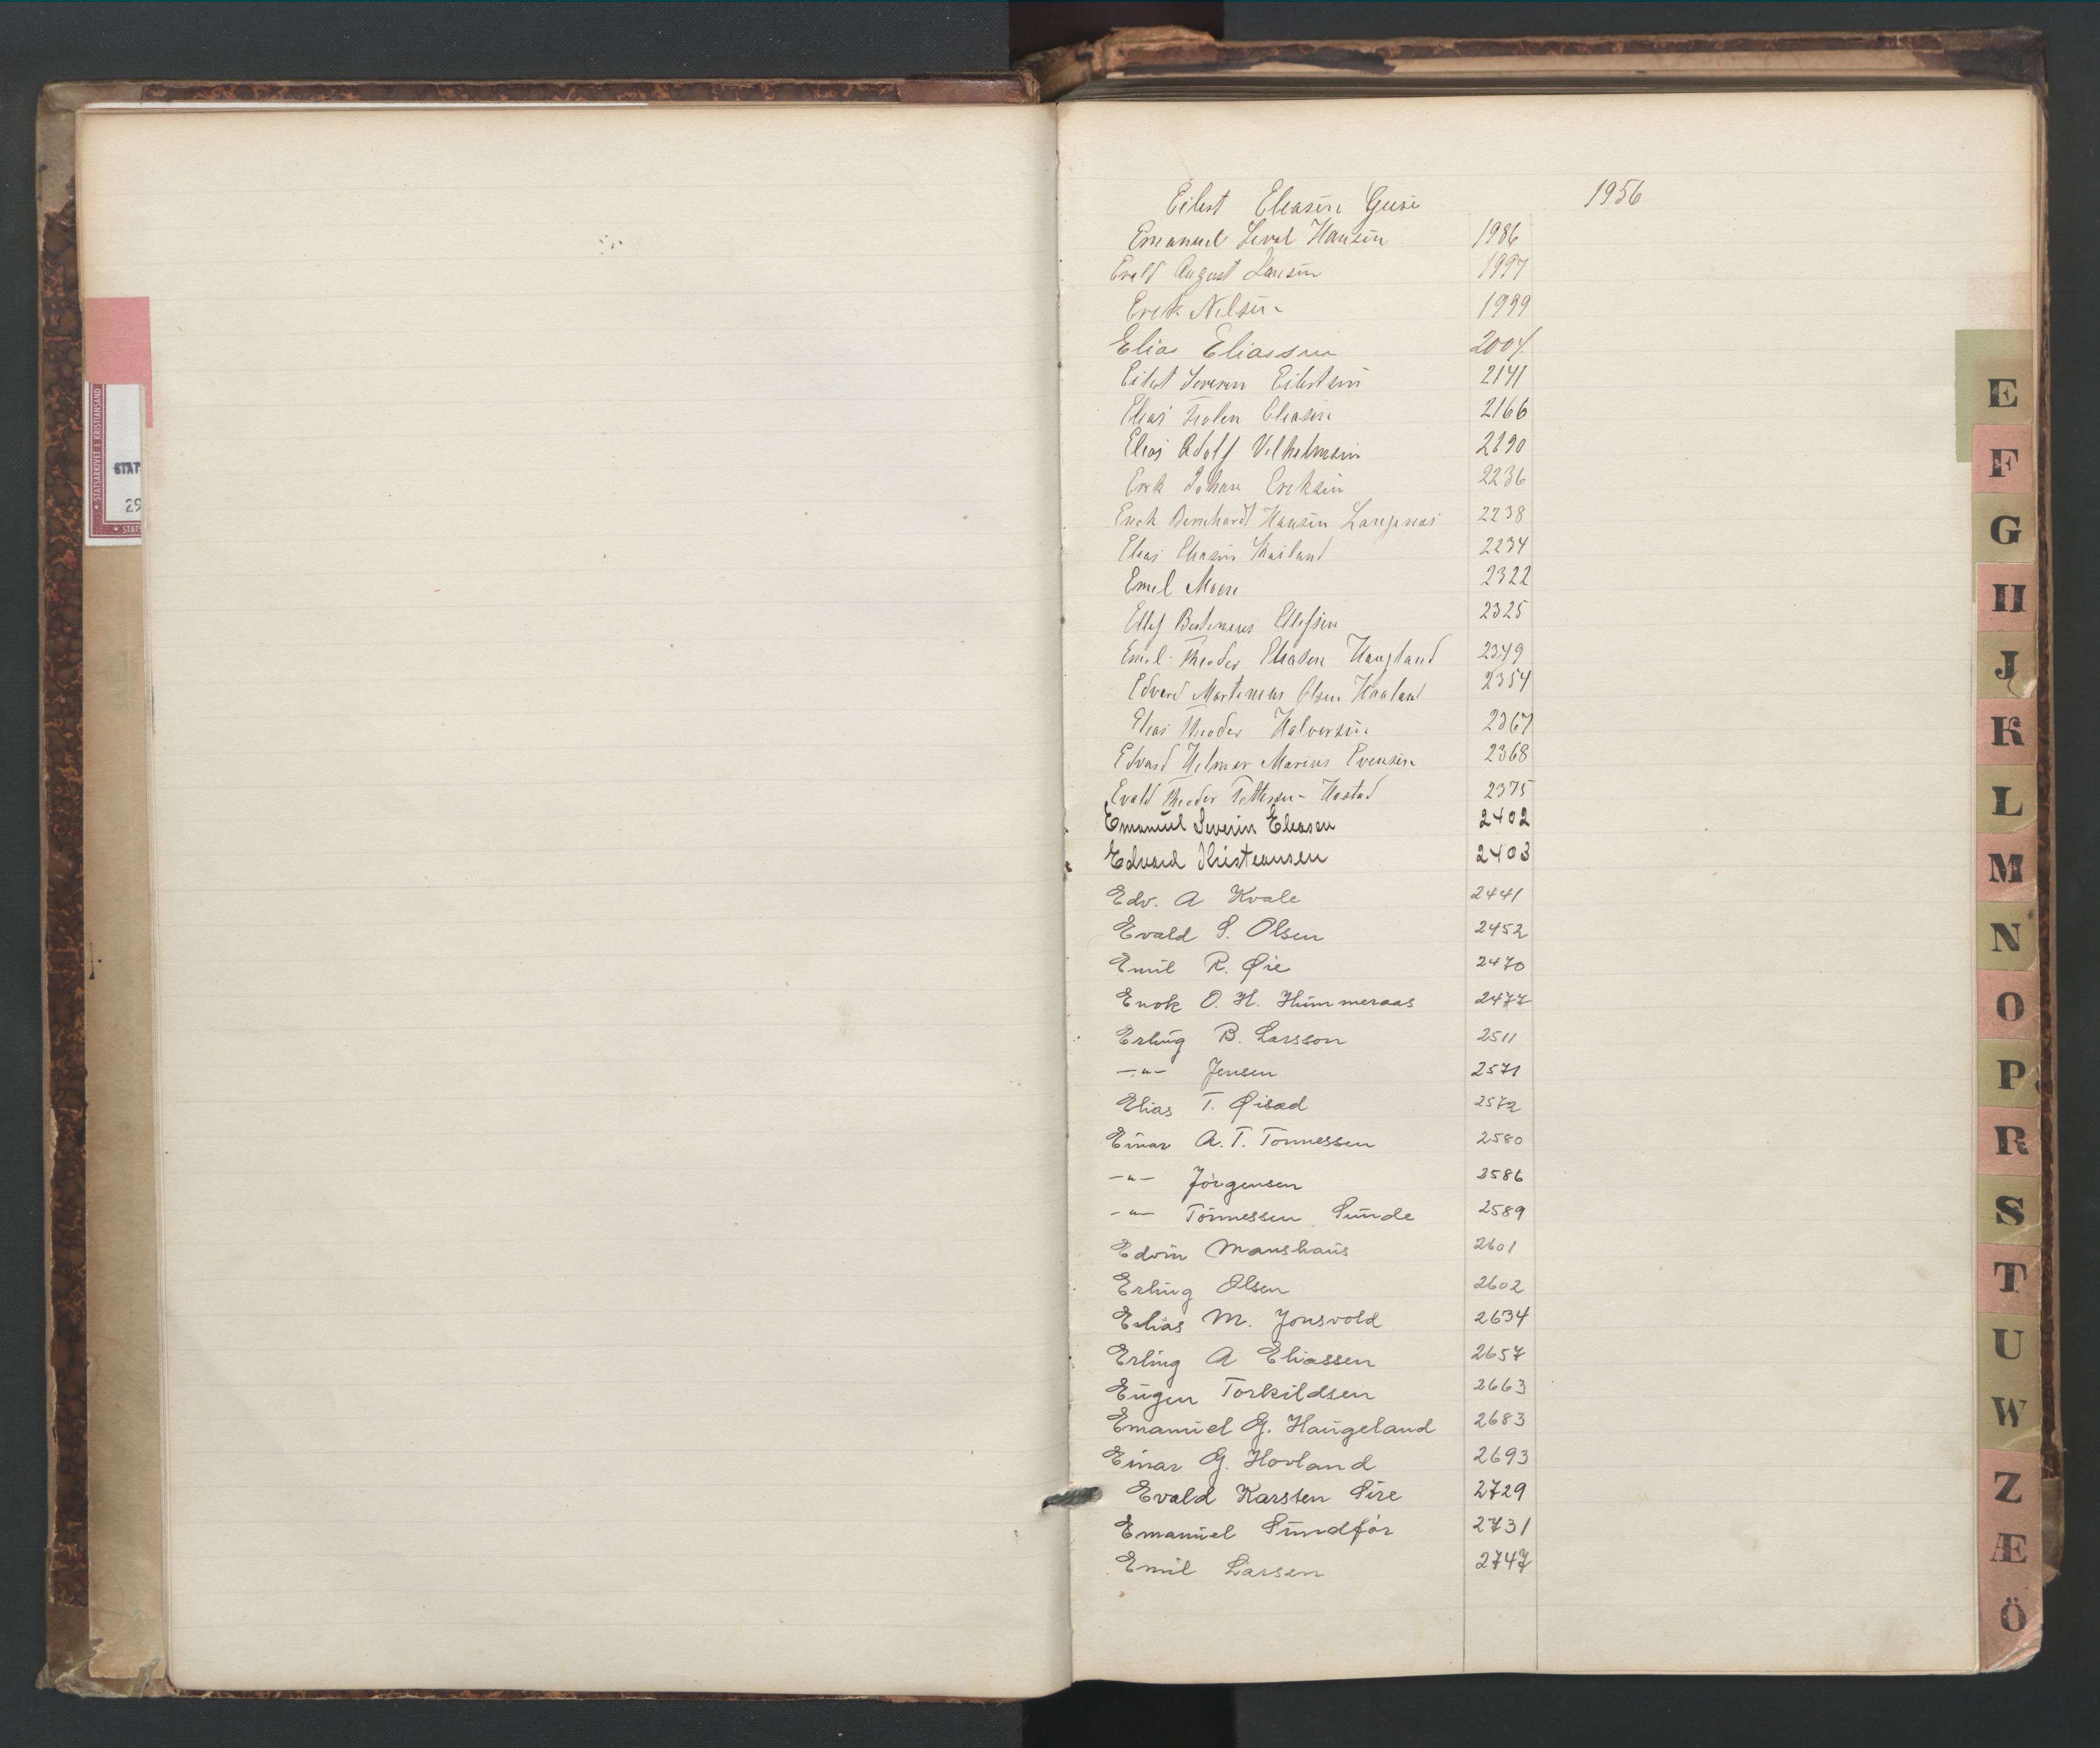 STATSARKIVET I KRISTIANSAND
STAT
29
Eilert Eleasen Gusi 1956
Emanuel Hansen 1986
Evald August 1997
Erik Nilsen 1999
Elias Eliassen 2004.
Eilert Severin Eilertsen 2141
Elias Eliasen 2166
Elias Adolf Vilhelmsen 2190
Erik Johan Eriksen 2236
Enok Bernhard Hansen Langenes 2238
Elias Eliasen 2234
Emil Moen 2322
Ellef Ellefsen 2325
Emil Theodor Eliasen Haugland 2349
Edvard Martinius Olsen Haaland 2354
Elias Theodor Halvorsen 2367
Edvard Hilmar Marius Evensen 2368
Evald Theodor 2375
Emanuel Severin Eleasen 2402
Edvard Kristiansen 2403
Edv. A Kvale 2441
Evald S. Olsen 2452
Emil R. Øie 2470
Enok O. H. Hummeraas 2477
Erling B. Larsson 2511
—"— Jensen 2571
Elias T. Øisad 2572
Einar A. T. Tönnessen 2580
—"— Jörgensen 2586
—"— Tönnessen Sunde 2589
Edvin Maushaus 2601
Erling Olsen 2602
Elias M. Jonsvold 2634
Erling A Eliassen 2657
Eugen Torkildsen 2663
Emanuel G. Haugeland 2683
Einar G. Hovland 2693
Evald Karsten Sire 2729
Emanuel Sundför 2731
Emil Larsen 2747
E
F
G
H
J
K
L
M
N
O
P
R
S
T
U
W
Z
Æ
Ö